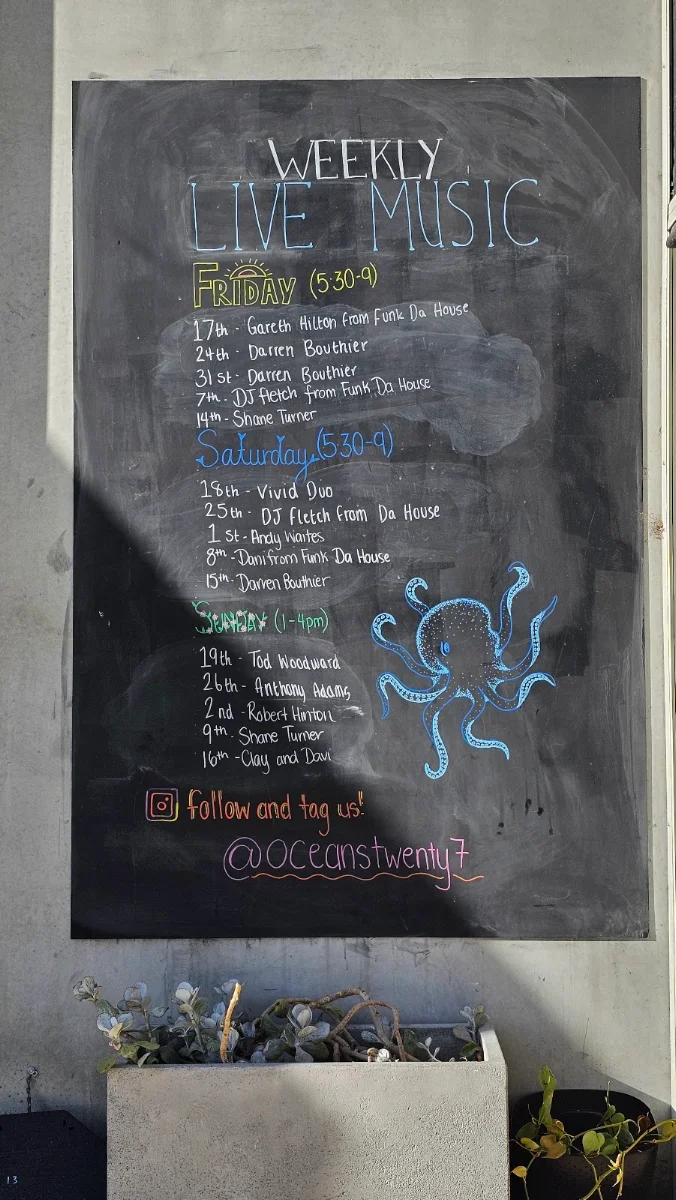 WEEKLY
LIVE MUSIC
FRIDAY (5:30-9)
17th - Gareth Hilton from Funk Da House
24th - Darren Bouthier
31st - Darren Bouthier
7th - DJ fletch from Funk Da House
14th - Shane Turner
Saturday (5:30-9)
18th - Vivid Duo
25th - DJ fletch from Da House
1st - Andy Waites
8th - Dani from Funk Da House
15th - Darren Bouthier
SUNDAY (1-4pm)
19th - Tod Woodward
26th - Anthony Adams
2nd - Robert Hinton
9th - Shane Turner
16th - Clay and Davi
follow and tag us!
@oceanstwenty7
13